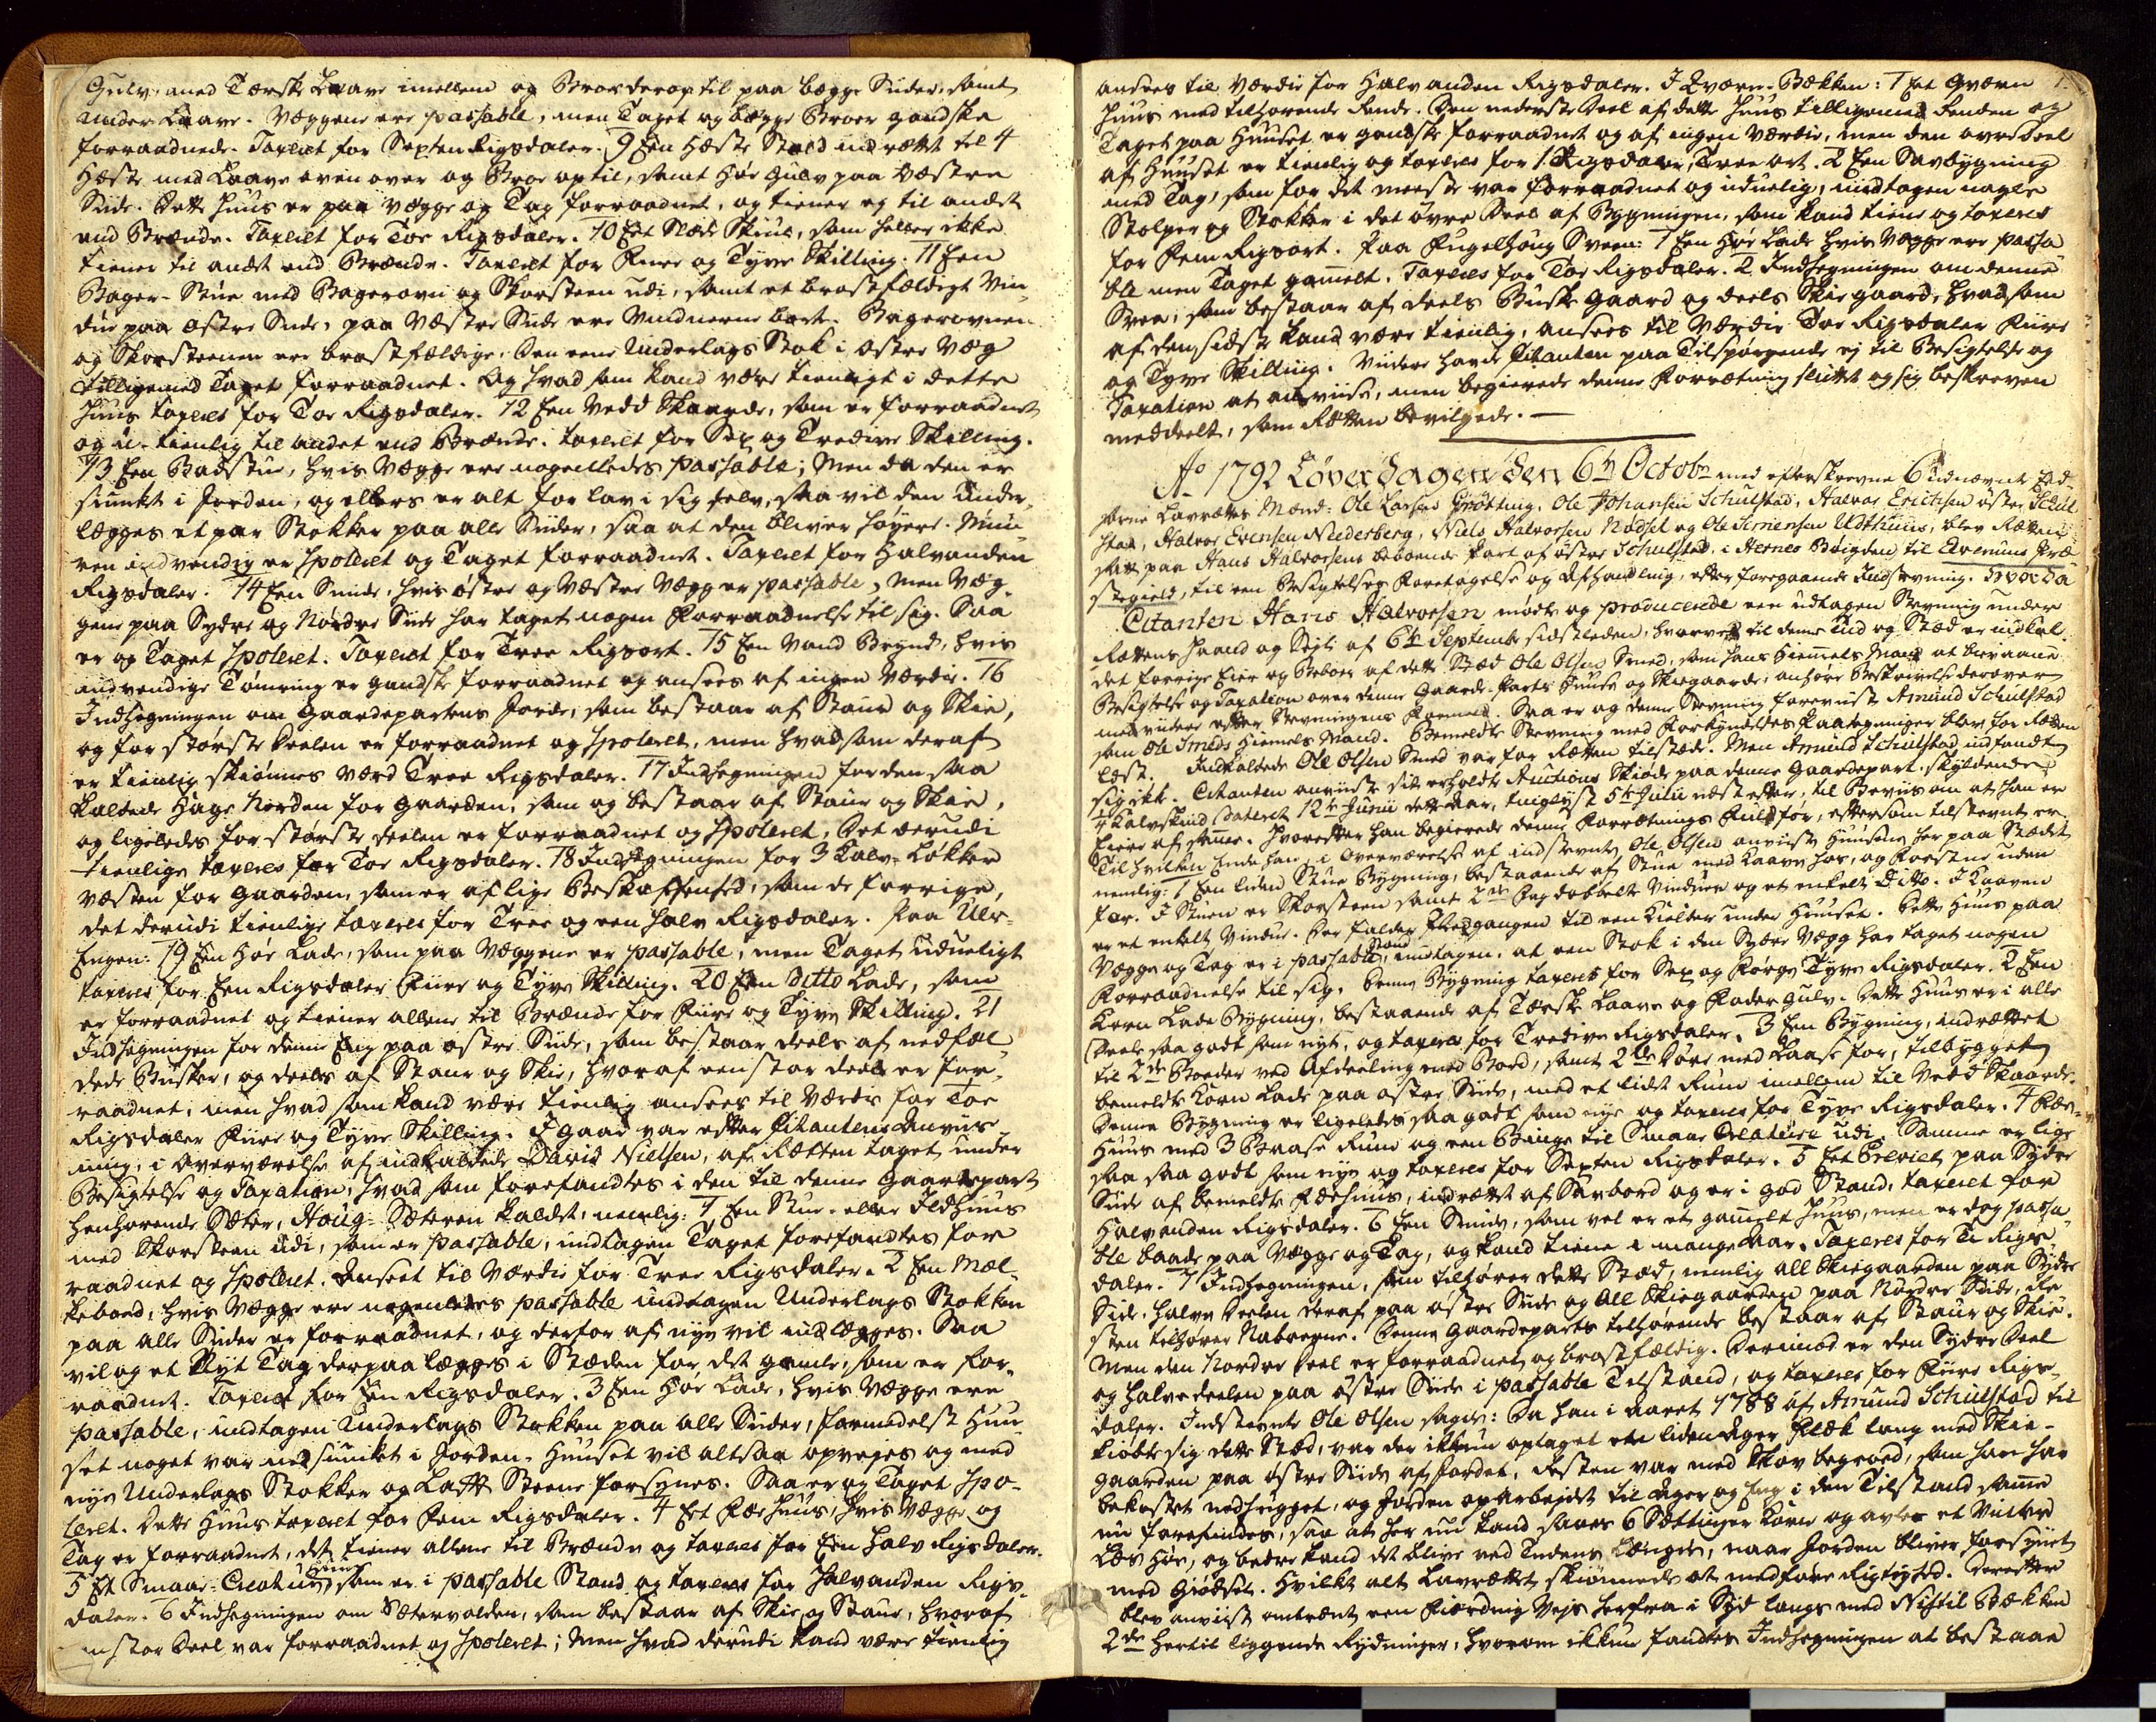 Gulv, med Tærske Laave imellem og Broe deroptil paa begge Siider, samt
under Laave. Væggene ere passable, men Taget og begge Broer gandske
forraadnede. Taxeret for Søtten Rigsdaler. 9 Een Hæste Stald indrættet til 4
Hæste med Laave oven over og Broe optil, samt Høe Gulv paa Væstre
Siide. Dette Huus er paa Vægge og Tag forraadnet, og tiener ej til andet
end Brænde. Taxeret for Toe Rigsdaler. 10 Eet Slæde Skiul, som heller ikke
tiener til andet end Brænde. Taxeret for Fiire og Tyve Skilling. 11 Een
Bager-Stue med Bagerovn og Skorsteen udi, samt et brøstfældigt Vin-
due paa østre Siide, paa Væstre Siide ere Vinduerne borte. Bagerovnen
og Skorsteenen ere brøstfældige. Den eene Underlags Stok i østre Væg
tilligemed Taget forraadnet. Og hvad som kand være tienligt i dette
Huus taxeres for Toe Rigsdaler. 12 Een Vedd Skaarde, som er forraadnet
og u-tienlig til andet end Brænde. taxeret for Sex og Tredive Skilling.
13 Een Badstue, hvis Vægge ere nogenledes passable; Men da den er
siunket i Jorden, og ellers er alt for lav i sig selv, saa vil den under-
lægges et par Stokker paa alle Siider, saa at den bliver høyere. Muu-
ren indvendig er spoleret og Taget forraadnet. Taxeret for Halvanden
Rigsdaler. 14 Een Smide, hvis østre og Væstre Vægg er passable, men Væg-
gene paa Sydre og Nordre Siide har taget nogen Forraadnelse til sig. Saa
er og Taget spoleret. Taxeret for Tree Rigsort. 15 Een Vand Brynd, hvis
indvendige Tømring er gandske forraadnet og ansees af ingen Værdie. 16
Indhegningen om Gaardepartens Jorde, som bestaar af Staur og Skie,
og for største Deelen er forraadnet og spoleret, men hvad som deraf
er tienlig skiønnes værd Tree Rigsdaler. 17 Indhegningen for den saa
kaldede Hage Norden for Gaarden, som og bestaar af Staur og Skie,
og ligeledes for største deelen er forraadnet og spoleret, Det derudi
tienlige taxeres for Toe Rigsdaler. 18 Indhegningen for 3 Kalve Løkker
væsten for Gaarden, som er af lige Beskaffenhed, som de forrige,
det derudi tienlige taxeres for Tree og een halv Rigsdaler. Paa Ulv-
Engen: 19 Een Høe Lade, som paa Væggene er passable, men Taget udueligt
taxeres for Een Rigsdaler Fiire og Tyve Skilling. 20 Een ditto Lade, som
er forraadnet og tiener allene til Brænde for Fiire og Tyve Skilling. 21
Indhegningen for denne Eng paa østre Siide, som bestaar deels af nedfæl-
dede Busker, og deels af Staur og Skie, hvoraf een stor deel er for-
raadnet, men hvad som kand være tienlig ansees til Værdie for Toe
Rigsdaler Fiire og Tyve Skilling. I Gaar var efter Citantens Anviis-
ning, i Overværelse af indkaldede David Nielsen, af Rætten taget under
Besigtelse og Taxation, hvad som forefandtes i den til denne Gaardepart
henhørende Sæter, Houg-Sæteren kaldet, nemlig: 1 Een Stue- eller Ildhuus
med Skorsteen udi, som er passable, undtagen Taget forefandtes for-
raadnet og spoleret. Anseet til Værdie for Tree Rigsdaler. 2 Een Mæl-
keboed, hvis Vægge ere nogenledes passable undtagen Underlags Stokken
paa alle Siider er forraadnet, og derfor af nye vil indlægges. Saa
vil og et Nyt Tag derpaa lægges i Stæden for det gamle, som er for-
raadnet. Taxeret for Een Rigsdaler. 3 Een Høe Lade, hvis Vægge ere
passable, undtagen Underlags Stokken paa alle Siider, formedelst Huu-
set noget var nedsiunket i Jorden. Huuset vil altsaa opvejes og med
nye Underlags Stokker og Laft Steene forsynes. Saa er og Taget spo-
leret. Dette Huus taxeret for Fem Rigsdaler. 4 Eet Fæehuus, hvis Vægge og
Tag er forraadnet, det tiener allene til Brænde og taxeres for Een halv Rigsdaler.
5 Et Smaae-Creatur Huus, som er i passable Stand og taxeres for Halvanden Rigs-
daler. 6 Indhegningen om Sætervolden, som bestaar af Skie og Staur, hvoraf
een stor Deel var forraadnet og spoleret; Men hvad derudi kand være tienlig
ansees til Værdie for Halvanden Rigsdaler. I Qværn-Bækken: 1 Eet Qværn
Huus med tilhørende Rende. Den nederste Deel af dette Huus tilligemed Renden og
Taget paa Huuset er gandske forraadnet og af ingen Værdie, men den øvre Deel
af Huuset er tienlig og taxeres for 1 Rigsdaler, Tree ort. 2 Een Savbygning
med Tag, som for det meeste var forraadnet og uduelig, undtagen nogle
Stolper og Stokker i det øvre Deel af Bygningen, som kand tiene og taxeres
for Fem Rigsort. Paa Fugelhoug Sveen: 1 Een Høe Lade hvis Vægge ere passa-
ble men Taget gamelt. Taxeres for Toe Rigsdaler. 2 Indhegningen om denne
Svee, som bestaar af deels Buske Gaard og deels Skiegaard, hvad som
af den sidste kand være tienlig, ansees til Værdie Toe Rigsdaler Fiire
og Tyve Skilling. Viidere havde Citanten paa Tilspørgende ej til Besigtelse og
Taxation at anviise, men begierede denne Forrætning sluttet og sig beskreven
meddeelt, som Rætten bevilgede. —
Ao 1792 Løverdagen den 6te Octobr med efterskrevne 6 udnævnte Eed-
sorne Lavrættes Mænd: Ole Larsen Grøtting, Ole Johansen Schulstad, Halvor Erichsen østre Schul-
stad, Halvor Evensen Nederberg, Niels Halvorsen Nødset og Ole Simensen Udthuus, blev Rætten
satt paa Hans Halvorsens beboende Part af østre Schulstad, i Hernes Bøigden til Elverums Præ-
stegield, til een Besigtelses Foretagelse og Afhandling, efter foregaaende Indstevning. Hvor da
Citanten Hans Halvorsen mødte og producerede een udtagen Stevning under
Rættens Haand og Segl af 6te Septembr sidstleden, hvorved til denne Tid og Stæd er indkal-
det forrige Eier og Beboer af dette Stæd Ole Olsen Smed, som hans Hiemels Mand at bievaane
Besigtelse og Taxation over denne Gaarde-Parts Huuse og Skiegaarde, anhøre Beskrivelse derover
med viidere efter Stevningens Formeld. Saa er og denne Stevning foreviist Amund Schulstad
som Ole Smeds Hiemels Mand. Bemeldte Stevning med Forkyndelses Paategninger blev for Rætten
læst. Indkaldede Ole Olsen Smed var for Rætten tilstæde. Men Amund Schulstad indfandt
sig ikke. Citanten anviiste sit erholdte Auctions Skiøde paa denne Gaardepart, skyldende
4 Kalvskind dateret 12te Junii dette Aar, tinglyst 5te Julii næst efter, til Beviis om at han er
Eiere af samme. Hvorefter han begierede denne Forrætnings Fuldfør, eftersom tilstevnt er.
Til hvilken Ende han i Overværelse af indstevnte Ole Olsen anviiste Huusene her paa Stædet
nemlig: 1 Een liden Stue Bygning, bestaaende af Stue med Kaave hos, og Forstue uden
for. I Stuen er Skorsteen samt 2de Fag dobbelte Vinduer og et enkelt Ditto. I Kaaven
er et enkelt Vindue. Der falder Nedgangen til een Kielder under Huuset. Dette Huus paa
Vægge og Tag er i passable Stand, undtagen, at een Stok i den Sydre Vægg har taget nogen
Forraadnelse til sig. Denne Bygning taxeres for Sex og Førgetyve Rigsdaler. 2 Een
Korn Lade Bygning, bestaaende af Tærske Laave og Foder Gulv. Dette Huus er i alle
Deele saa godt som nyt, og taxeres for Tredive Rigsdaler. 3 Een Bygning, indrættet
til 2de Boeder ved Afdeeling med Bord, samt 2de Døre med Laase for, tilbygget
bemeldte Korn Lade paa østre Siide, med et lidet Rum imellem til Vedd Skaarde.
Denne Bygning er ligeledes saa godt som nye og taxeres for Tyve Rigsdaler. 4 Fæe-
Huus med 3 Baase Rum og een Binge til Smaae Creature udi. Samme er lige
saa saa godt som nye og taxeres for Søtten Rigsdaler. 5 Eet Previet paa Sydre
Siide af bemeldte Fæehuus, indrættet af Saubord og er i god Stand, taxeret for
Halvanden Rigsdaler. 6 Een Smide, som vel er et gamelt Huus, men er dog passa-
ble baade paa Vægge og Tag, og kand tiene i mange Aar. Taxeres for Ti Rigs-
daler. 7 Indhegningen, som tilhører dette Stæd, nemlig all Skiegaarden paa Sydre
Siide, halve Deelen deraf paa østre Siide og all Skiegaarden paa Nordre Siide, Re-
sten tilhører Naboerne. Denne Gaardeparts tilhørende bestaar af Staur og Skie.
Men den Nordre Deel er forraadnet og brøstfældig. Derimod er den Sydre Deel
og halvedeelen paa østre Siide i passable Tilstand, og taxeres for Fiire Rigs-
daler. Indstevnte Ole Olsen sagde: Da han i Aaret 1788 af Amund Schulstad til-
kiøbte sig dette Stæd, var der ikkun optaget een liden Ager Flæk lang med Skie-
gaarden paa østre Siide af Jordet, Resten var med Skov begroed, som han har
bekostet nedhugget, og Jorden oparbejdet til Ager og Eng i den Tilstand samme
nu forefindes, saa at her nu kand saaes 6 Sættinger Korn og avles et Vinter
Læs Høe, og bedre kand det blive ved Tidens Længde, naar Jorden bliver forsynet
med Giødsel. Hvilket alt Lavrættet skiønnede at medføre Rigtighed. Derefter
blev anviist omtrent een Fierding Vejs herfra i Syd langs med Nistil Bækken
2de hertil liggende Rydninger, hvorom ikkun fandtes Indhegningen at bestaae